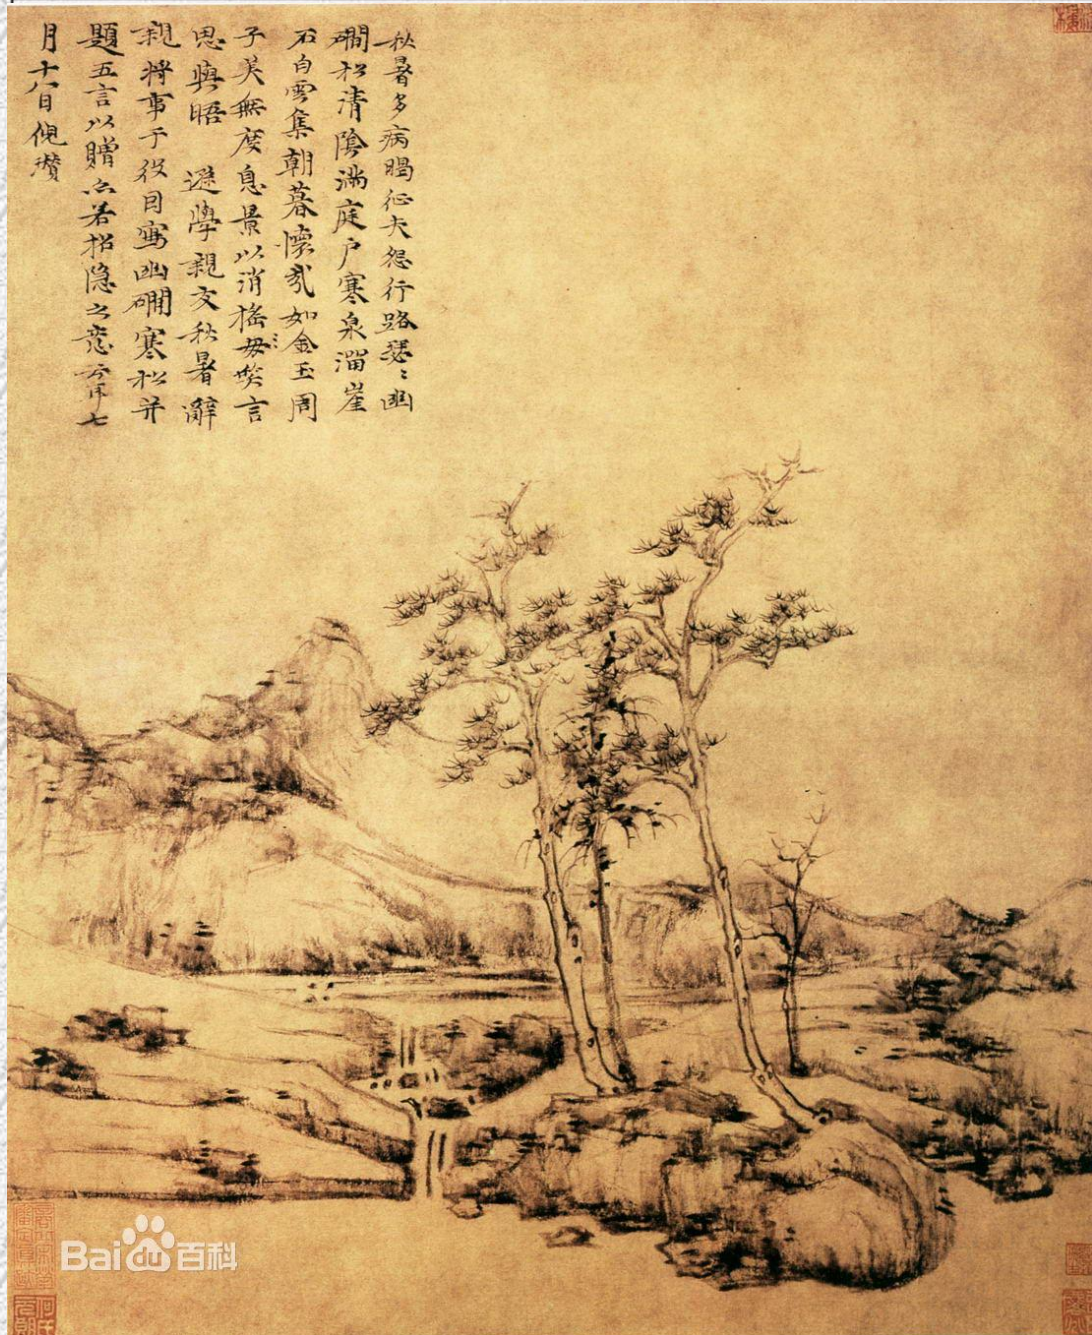 秋暑多病暍征夫怨行路瑟〻幽
磵松清陰滿庭户寒泉溜崖
石白雲集朝暮懷哉如金玉周
子美無度息景以消搖毋笑言
思與晤 遜學親友秋暑辭
親將事于役因寫幽磵寒松并
題五言以贈亦若招隱之意云耳七
月十八日倪瓚
Bai du 百科